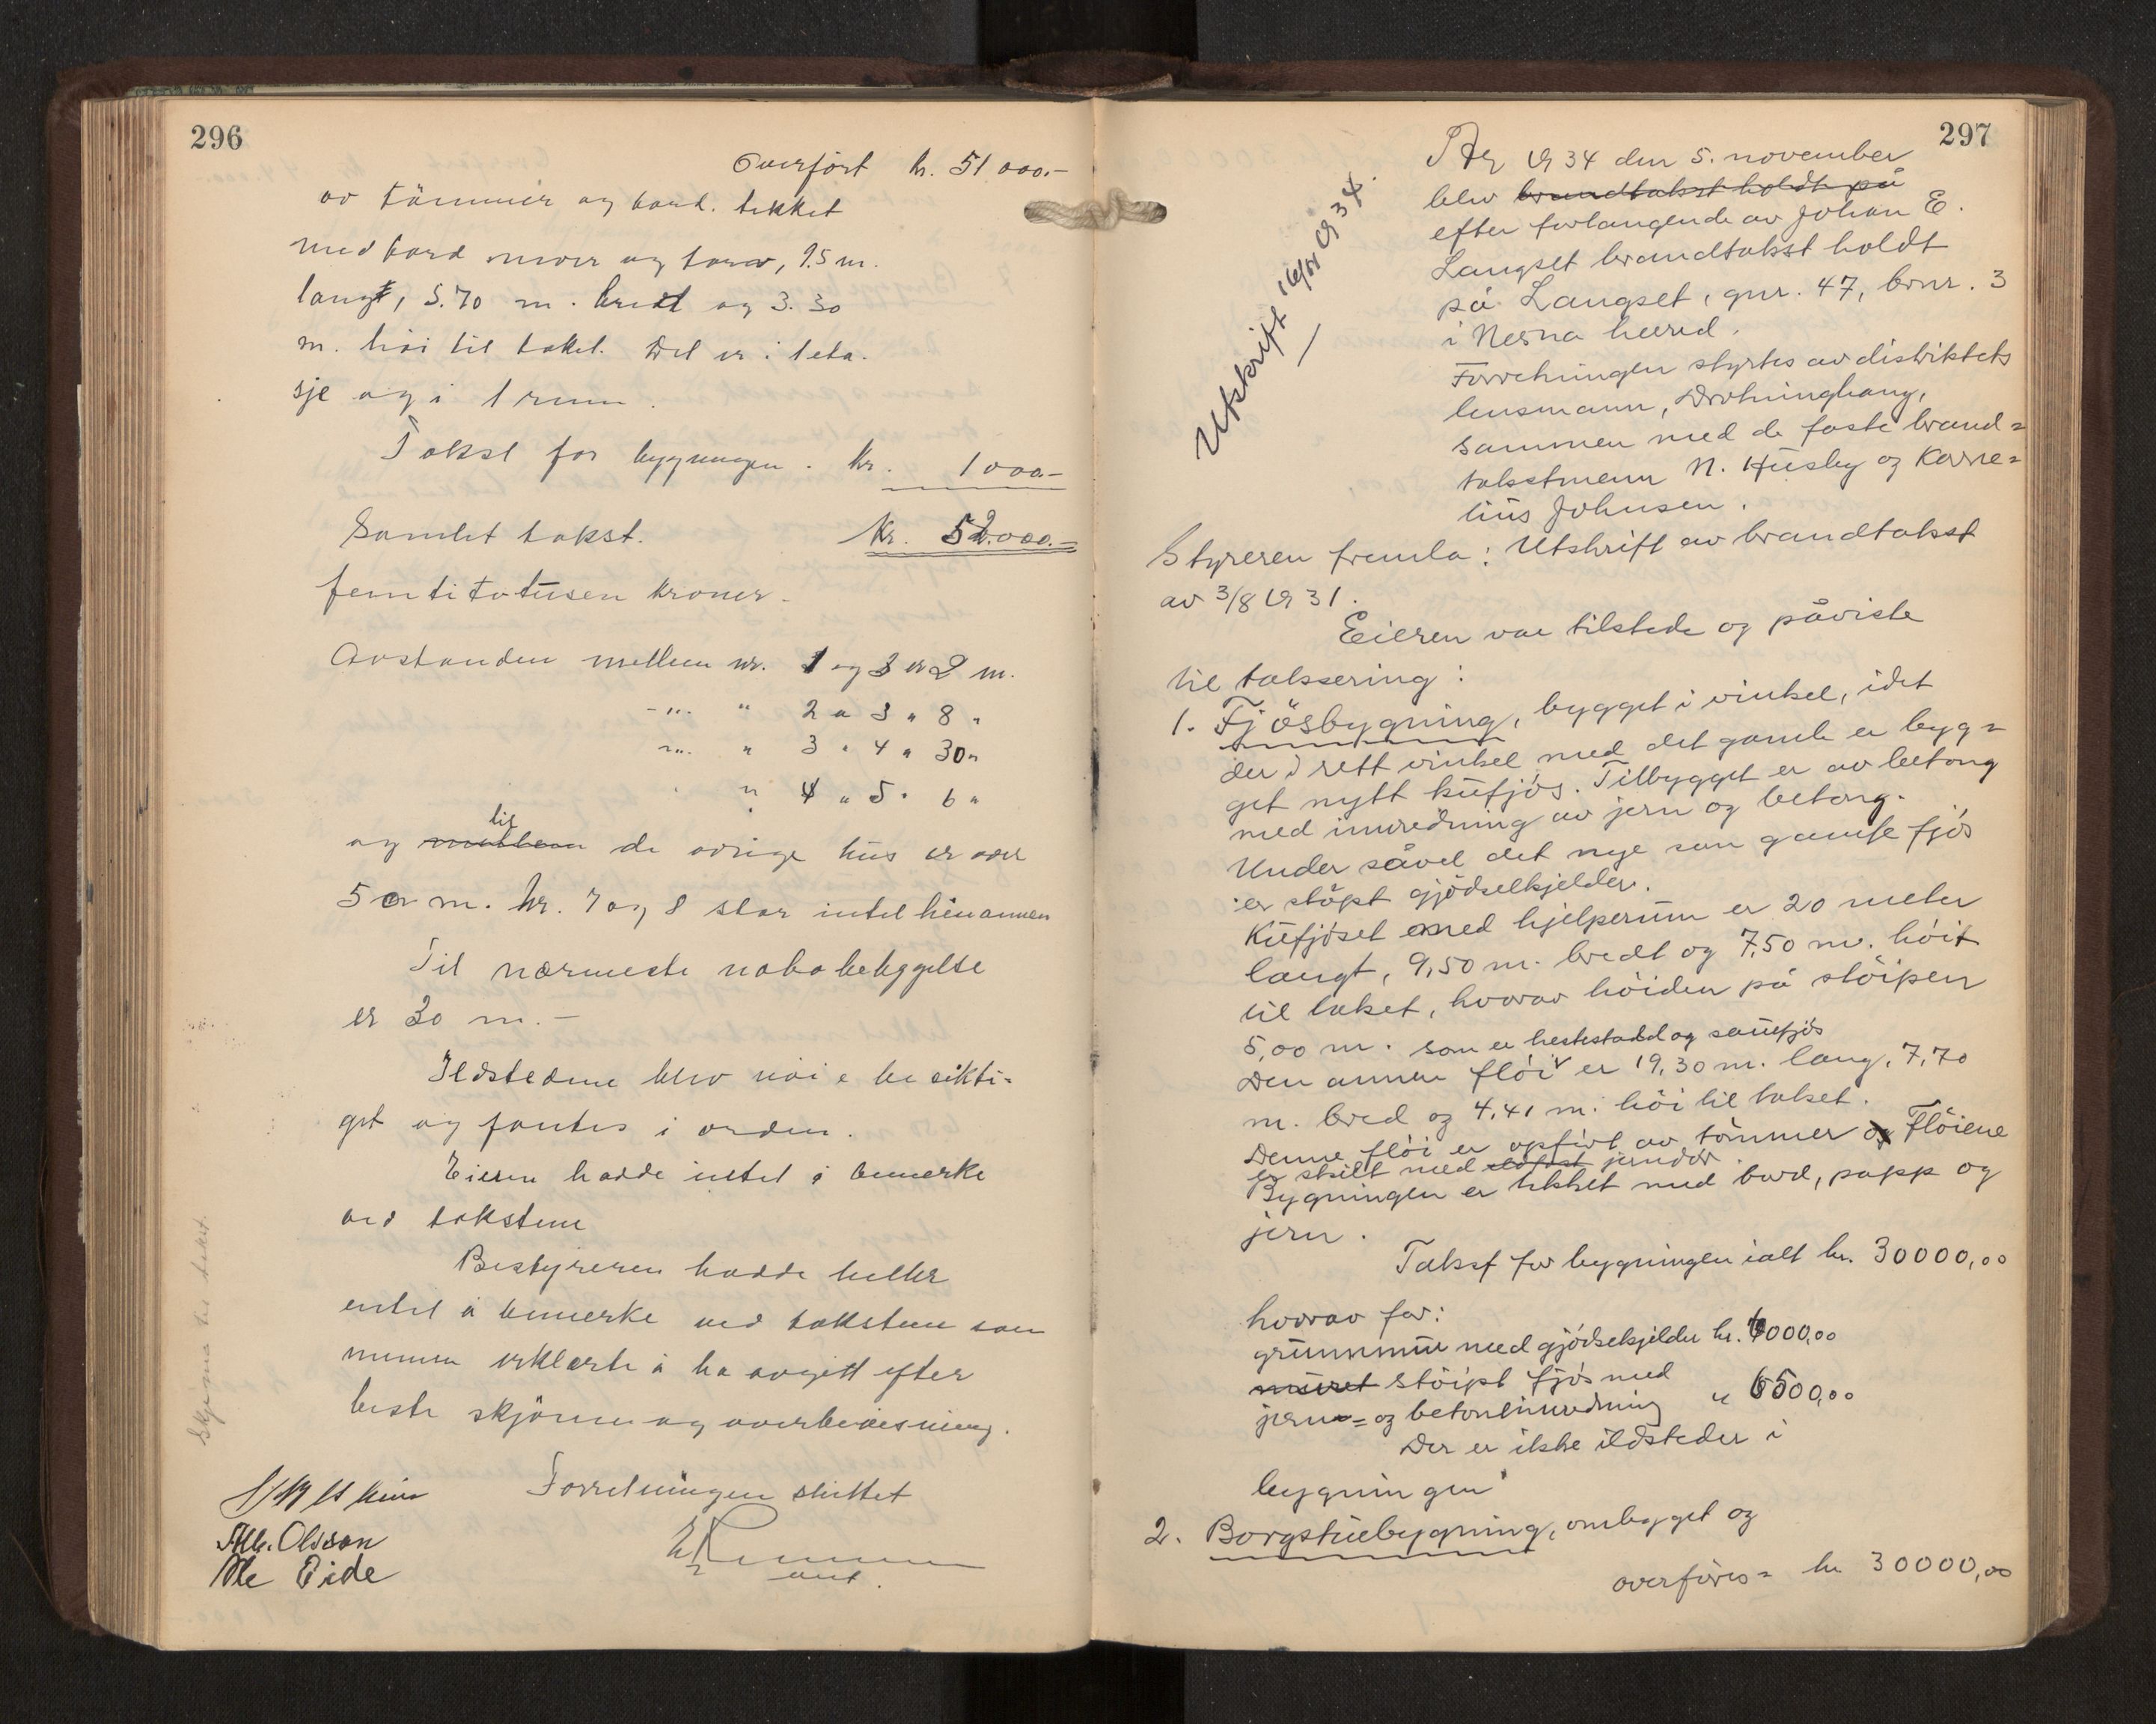 296
Overført kr. 51 000.-
av tömmer og bord. tekket
med bord never og torv, 9.5 m.
langt, 5.70 m. bredt og 3.30
m. höi til taket. Det er i 1 eta-
sje og i 1 rum.
Takst for bygningen. kr. 1000.-
Samlet takst. Kr. 52.000.-
femtitotusen kroner.
Avstanden mellem nr. 1 og 3 er 2 m.
-"- " 2 " 3 " 8 "
-"- " 3 " 4 " 30 "
" 4 " 5 " 6 "
til
og mellem de övrige hus er over
50 m. Nr. 7 og 8 står intil hinannen
Til nærmeste nabobebyggelse
er 30 m.-
Ildstedene blev nöie besikti-
get og fantes i orden.
Eieren hadde intet å bemerke
ved takstene
Bestyreren hadde heller
intet å bemerke ved takstene som
mennene erklærte å ha avgitt efter
beste skjönn og overbevisning.
Forretningen sluttet
Olsson
Ole Eide
Skjema til takst.
297
Utskrift 16/11 1934.
År 1934 den 5. november
blev brandtakst holdt på
efter forlangende av Johan E.
Langset brandtakst holdt
på Langset, gnr. 47, brnr. 3
i Nesna herred.
Forretningen styrtes av distriktets
lensmann, Drotninghaug,
sammen med de faste brand=
takstmenn N. Husby og Korne=
lius Johnsen.
Styreren fremla: Utskrift av brandtakst
av 3/8 1931.
Eieren var tilstede og påviste
til taksering:
1. Fjösbygning, bygget i vinkel, idet
der i rett vinkel med det gamle er byg=
get nytt kufjös. Tilbygget er av betong
med innredning av jern og betong.
Under såvel det nye som gamle fjös
er stöpt gjödselkjelder.
Kufjöset med hjelperum er 20 meter
langt, 9,50 m. bredt og 7,50 m. höit
til taket, hvorav höiden på stöipen
5,00 m. som er hestestald og sauefjös
Den annen flöi er 19,30 m. lang, 7,70
m. bred og 4,41 m. höi til taket.
Denne flöi er opfört av tömmer og Flöiene
er skilt med ildfast jerndör.
Bygningen er tekket med bord, papp og
jern.
Takst for bygningen ialt kr. 30000,00
hvorav for:
grunnmur med gjödselkjelder kr. 4000,00
muret stöipt fjös med
jern= og betoninnredning " 6500,00
Der er ikke ildsteder i
bygningen
2. Borgstuebygning, ombygget og
overföres= kr 30000,00